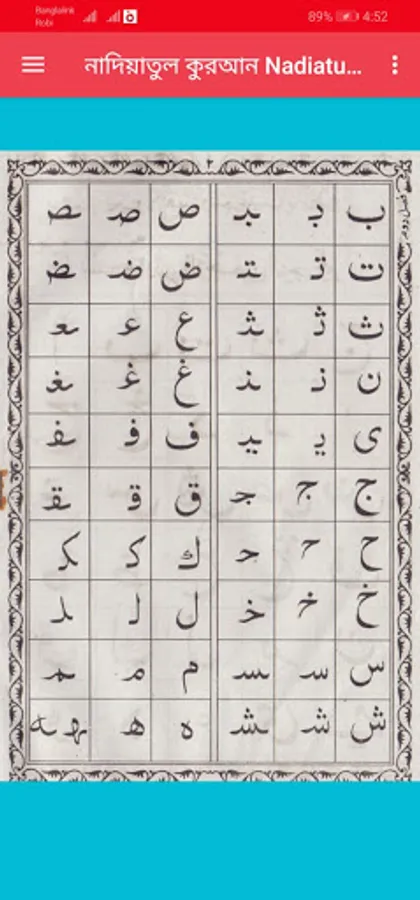 Banglalink
Robi
89% 4:52
নাদিয়াতুল কুরআন Nadiatu...
۲
ب بـ ـبـ ص صـ ـصـ
ت تـ ـتـ ض ضـ ـضـ
ث ثـ ـثـ ع عـ ـعـ
ن نـ ـنـ غ غـ ـغـ
ی يـ ـيـ ف فـ ـفـ
ج جـ ـجـ ق قـ ـقـ
ح حـ ـحـ ك كـ ـكـ
خ خـ ـخـ ل لـ ـلـ
س سـ ـسـ م مـ ـمـ
ش شـ ـشـ ه هـ ـهـه